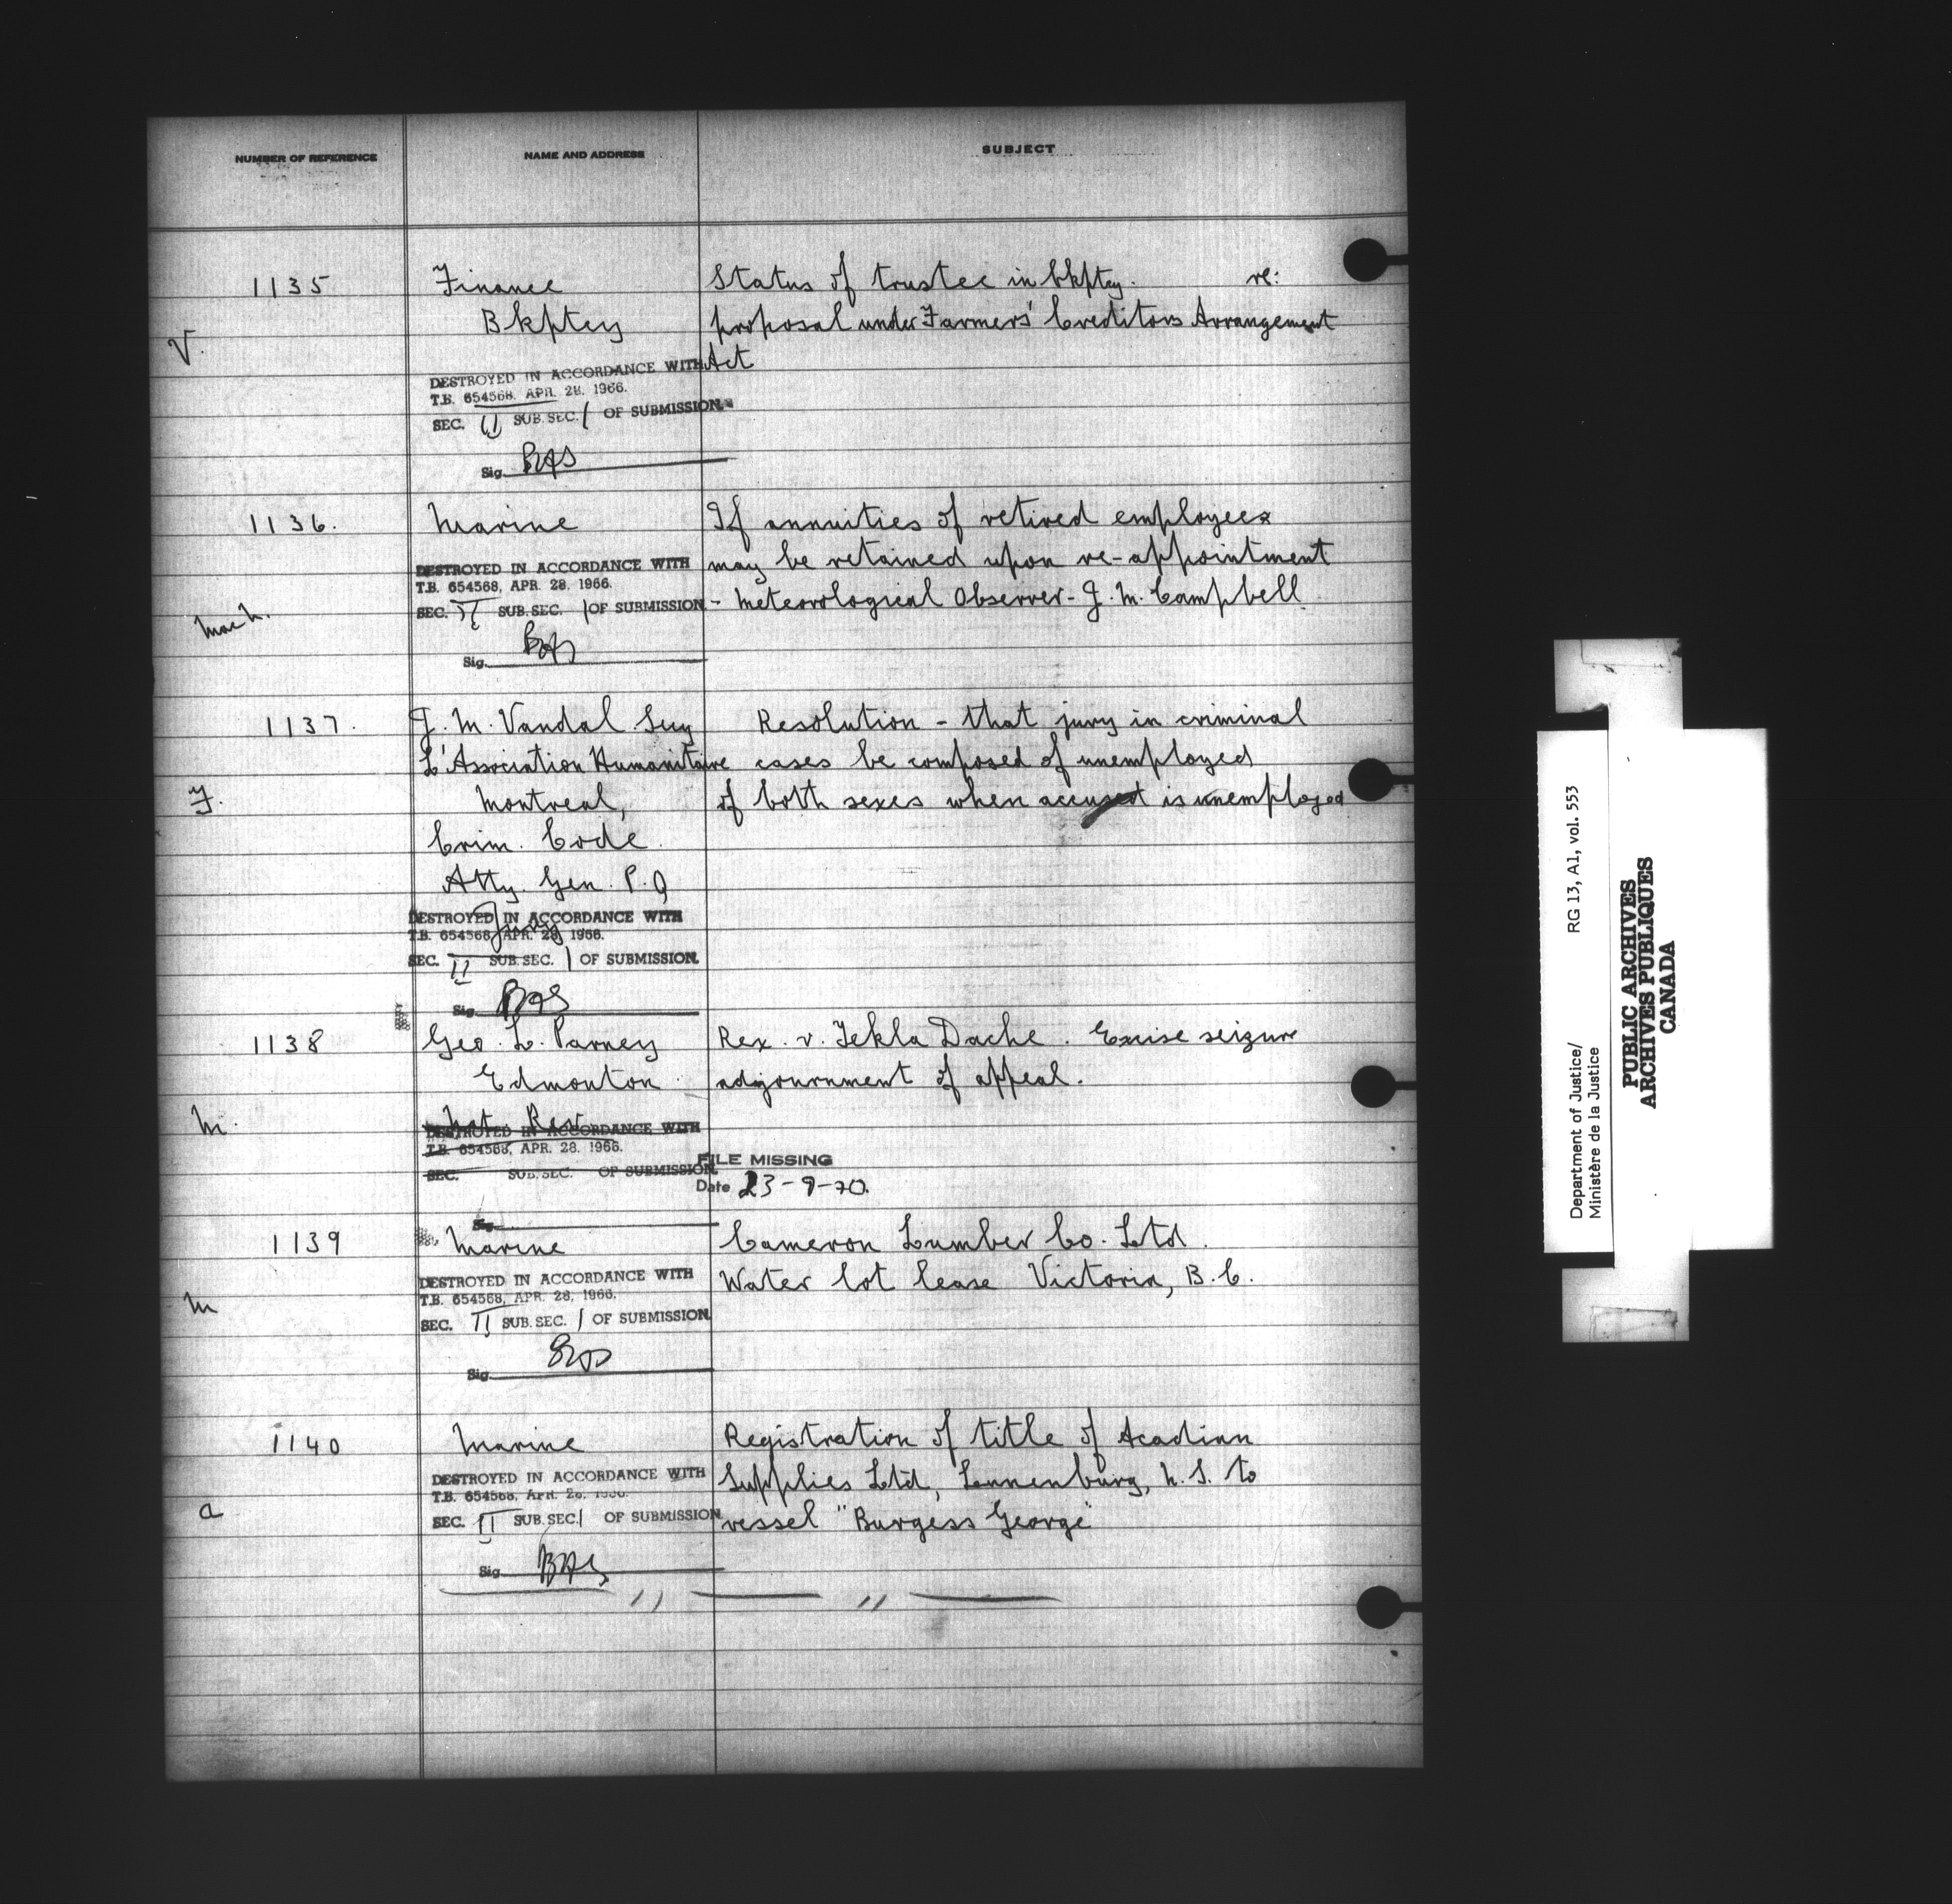 NUMBER OF REFERENCE NAME AND ADDRESS SUBJECT
1135 Finance Status of trustee in bkptcy. re:
Bkptcy proposal under Farmers' Creditors Arrangement
V. Act
DESTROYED IN ACCORDANCE WITH
T.B. 654568, APR. 28, 1966.
SEC. II SUB. SEC. 1 OF SUBMISSION.
Sig. BAS
1136. Marine If annuities of retired employees
may be retained upon re-appointment
- Meteorological Observer - J. M. Campbell
DESTROYED IN ACCORDANCE WITH
T.B. 654568, APR. 28, 1966.
SEC. II SUB. SEC. 1 OF SUBMISSION
Mach.
Sig. BAS
1137. J. M. Vandal Secy Resolution - that jury in criminal
L'Association Humanitaire cases be composed of unemployed
F. Montreal, of both sexes when accused is unemployed
Crim. Code.
Atty. Gen. P.Q
Jury
DESTROYED IN ACCORDANCE WITH
T.B. 654568, APR. 28, 1966.
SEC. II SUB. SEC. 1 OF SUBMISSION.
Sig. BAS
1138 Geo. L. Parney Rex. v. Tekla Dache. Excise seizure
Edmonton. adjournment of appeal.
M. Nat. Rev
DESTROYED IN ACCORDANCE WITH
T.B. 654568, APR. 28, 1966.
SEC. SUB. SEC. OF SUBMISSION.
FILE MISSING
Date 23-9-70.
Sig.
1139 Marine Cameron Lumber Co. Ltd.
Water lot lease Victoria, B.C.
M
DESTROYED IN ACCORDANCE WITH
T.B. 654568, APR. 28, 1966.
SEC. II SUB. SEC. 1 OF SUBMISSION.
Sig.
1140 Marine Registration of title of Acadian
Supplies Ltd, Lunenburg, N.S. to
a vessel "Burgess George"
DESTROYED IN ACCORDANCE WITH
T.B. 654568, APR. 28, 1966.
SEC. II SUB. SEC. 1 OF SUBMISSION.
Sig. BAS
Department of Justice/ RG 13, A1, vol. 553
Ministère de la Justice
PUBLIC ARCHIVES
ARCHIVES PUBLIQUES
CANADA